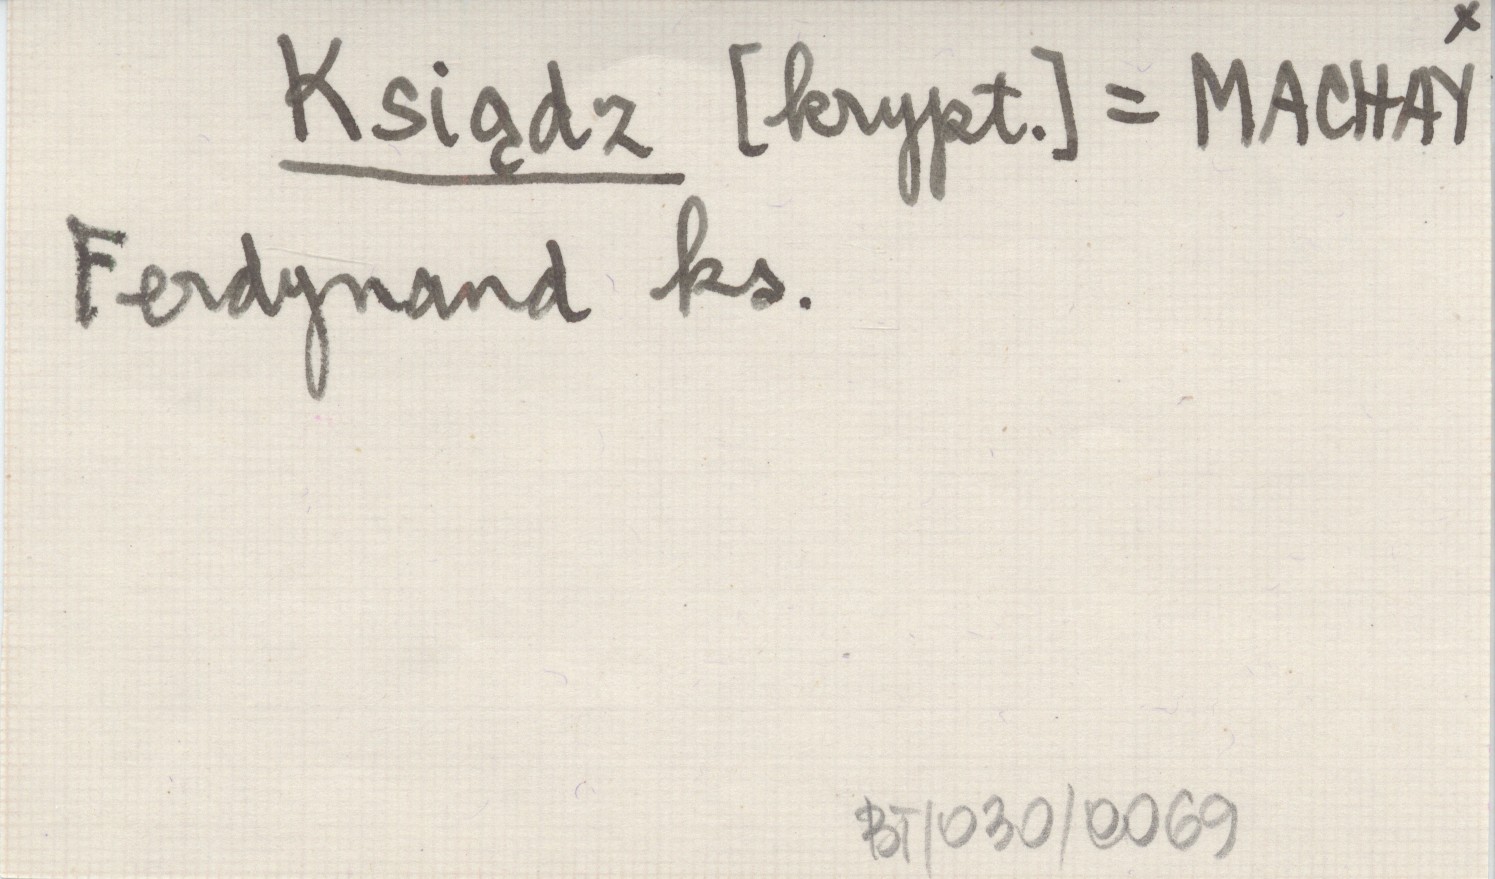 Ksiądz [krypt.] = MACHAY x
Ferdynand ks.
BT/030/0069